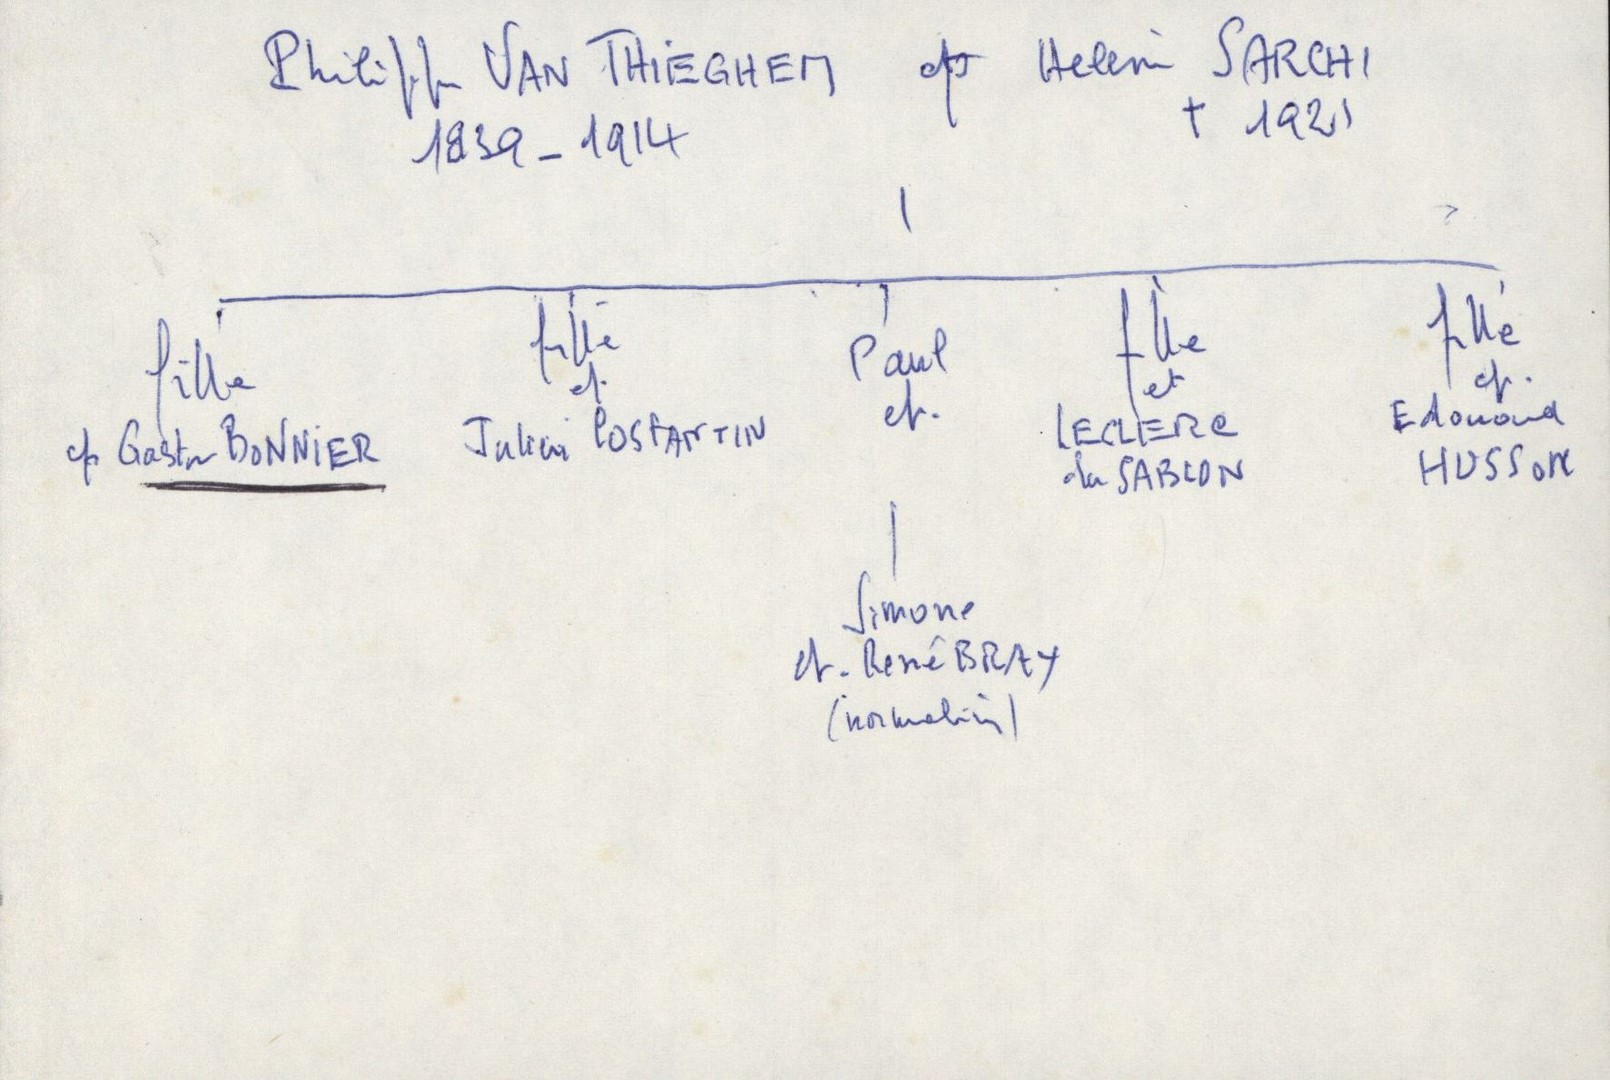 Philippe VAN THIEGHEM ép Helene SARCHI
1839 - 1914 † 1921
fille
ép Gaston BONNIER
fille
ép.
Julien COSTANTIN
Paul
ep.
fille
et
LECLERC
du SABLON
fille
ep.
Edouard
HUSSON
Simone
ep. René BRAY
(normalien)